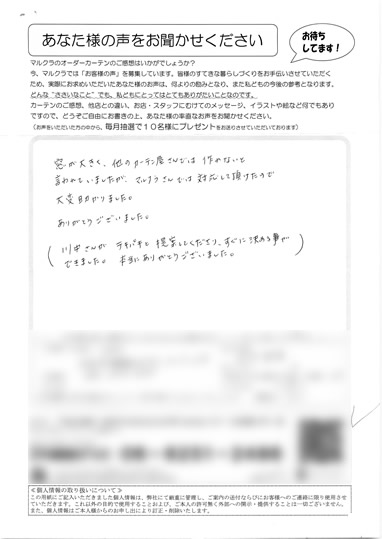 あなた様の声をお聞かせください
お待ち
してます!
マルクラのオーダーカーテンのご感想はいかがでしょうか?
今、マルクラでは「お客様の声」を募集しています。皆様のすてきな暮らしづくりをお手伝いさせていただく
ため、実際にお求めいただいたあなた様のお声は、何よりの励みとなり、また私どもの今後の参考となります。
どんな“ささいなこと”でも、私どもにとってはとてもありがたいことなのです。
カーテンのご感想、他店との違い、お店・スタッフにむけてのメッセージ、イラストや絵など何でもあり
ですので、どうぞご自由にお書きの上、あなた様の率直なお声をお聞かせください。
(お声をいただいた方の中から、毎月抽選で10名様にプレゼントをお送りさせていただいております)
窓が大きく、他のカーテン屋さんでは作れないと
言われていましたが、マルクラさんでは対応して頂けたので
大変助かりました。
ありがとうございました。
(川中さんが テキパキと提案してくださり、すぐに決める事が
できました。本当にありがとうございました。)
<個人情報の取り扱いについて>
この用紙にご記入いただきました個人情報は、弊社にて厳重に管理し、ご案内の送付ならびにお客様へのご連絡に限り使用させ
ていただきます。これ以外の目的で使用することおよび、ご本人の許可無く外部への開示・提供することは一切ございません。
また、個人情報はご本人様からのお申し出により訂正・削除いたします。